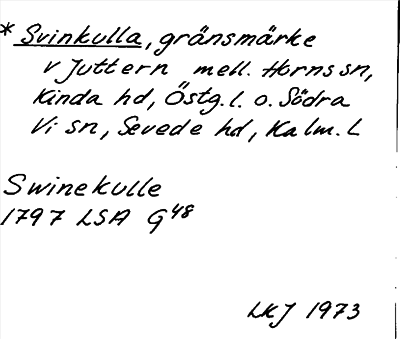 * Svinkulla, gränsmärke
v Juttern mell. Horns sn,
Kinda hd, Östg. l. o. Södra
Vi sn, Sevede hd, Kalm. L
Swinekulle
1797 LSA G48
LKJ 1973